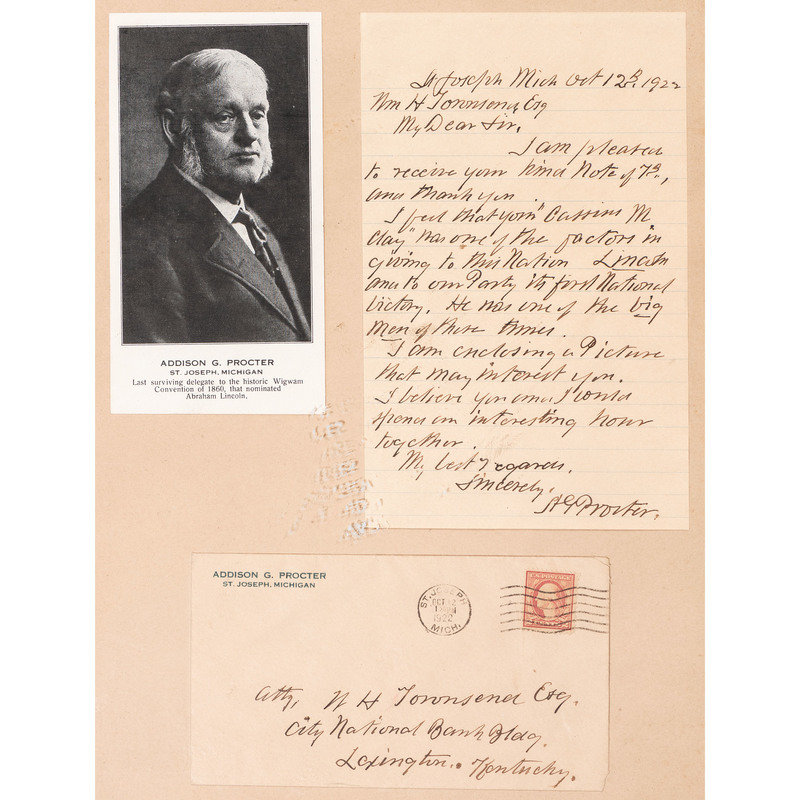 ADDISON G. PROCTER
ST. JOSEPH, MICHIGAN
Last surviving delegate to the historic Wigwam
Convention of 1860, that nominated
Abraham Lincoln,
St Joseph Mich Oct 12th, 1922
Wm H Townsend, Esq
My Dear Sir,
I am pleased
to receive your kind Note of 7th,
and thank you
I feel that your "Cassius M
Clay" was one of the factors in
giving to this Nation Lincoln
and to our Party its first National
Victory. He was one of the big
men of those times.
I am enclosing a Picture
that may interest you.
I believe you and I could
spend an interesting hour
together.
My best regards,
Sincerely,
A G Procter.
ADDISON G. PROCTER
ST. JOSEPH, MICHIGAN
ST. JOSEPH
OCT 12
1922
MICH.
U.S. POSTAGE
Atty, W H Townsend Esq.
City National Bank Bldg.
Lexington.. Kentucky.